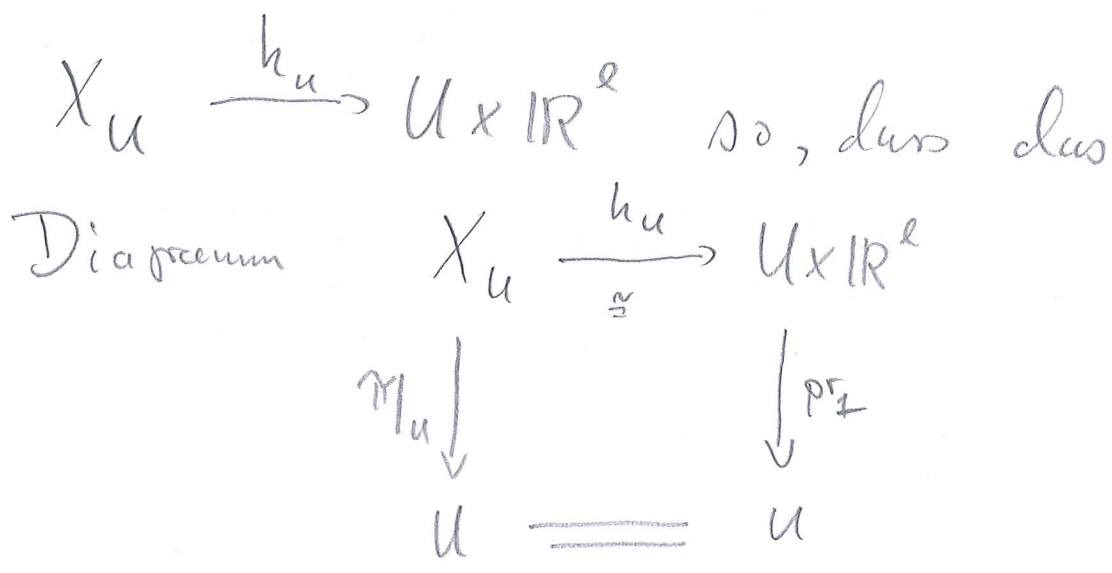 X_U —h_U→ U × ℝ^ℓ so, dass das
Diagramm X_U —h_U→ U × ℝ^ℓ
≅
π|_U ↓ ↓ pr_1
U ═══ U